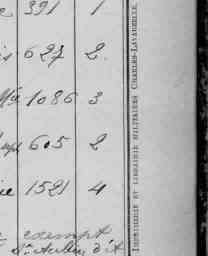 391 1
627 2
1086 3
605 2
1521 4
exempt
St Aubin dit
IMPRIMERIE ET LIBRAIRIE MILITAIRES CHARLES-LAVAUZELLE.